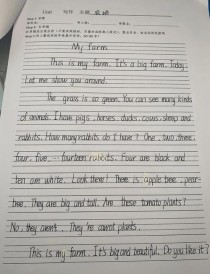 My farm
This is my farm. It's a big farm. Today,
Let me show you around.
The grass is so green. You can see many kinds
of animals. I have pigs, horses, ducks, cows, sheep and
rabbits. How many rabbits do I have? One, two, three,
four, five, ... fourteen rabbits. Four are black and
ten are white. Look there! There is apple tree, pear
tree. They are big and tall. Are these tomato plants?
No, they aren't. They're carrot plants.
This is my farm. It's big and beautiful. Do you like it?